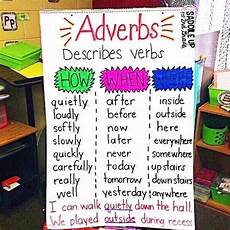 Pp
SADDLE UP
for 2nd Grade
Adverbs
Describes verbs
HOW WHEN
quietly after inside
loudly before outside
softly now here
slowly later everywhere
quickly never somewhere
carefully today upstairs
really tomorrow downstairs
well yesterday anywhere
I can walk quietly down the hall.
We played outside during recess